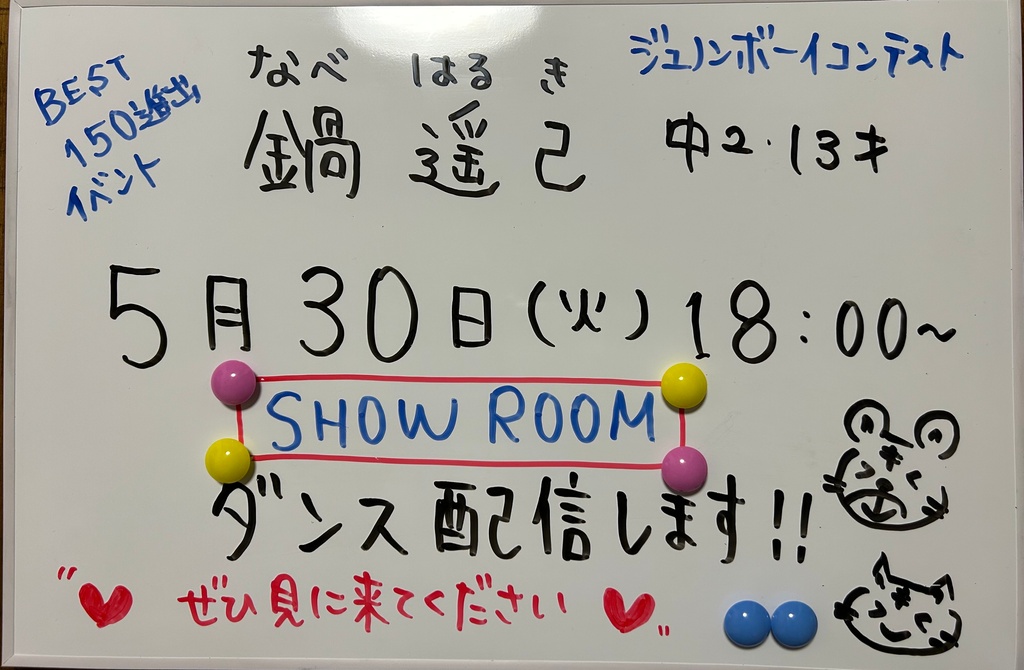 BEST
150進出
イベント
なべ はるき
鍋 遥己
ジュノンボーイコンテスト
中2・13才
5月30日(火)18:00~
SHOW ROOM
ダンス配信します!!
"♥ ぜひ見に来てください ♥"